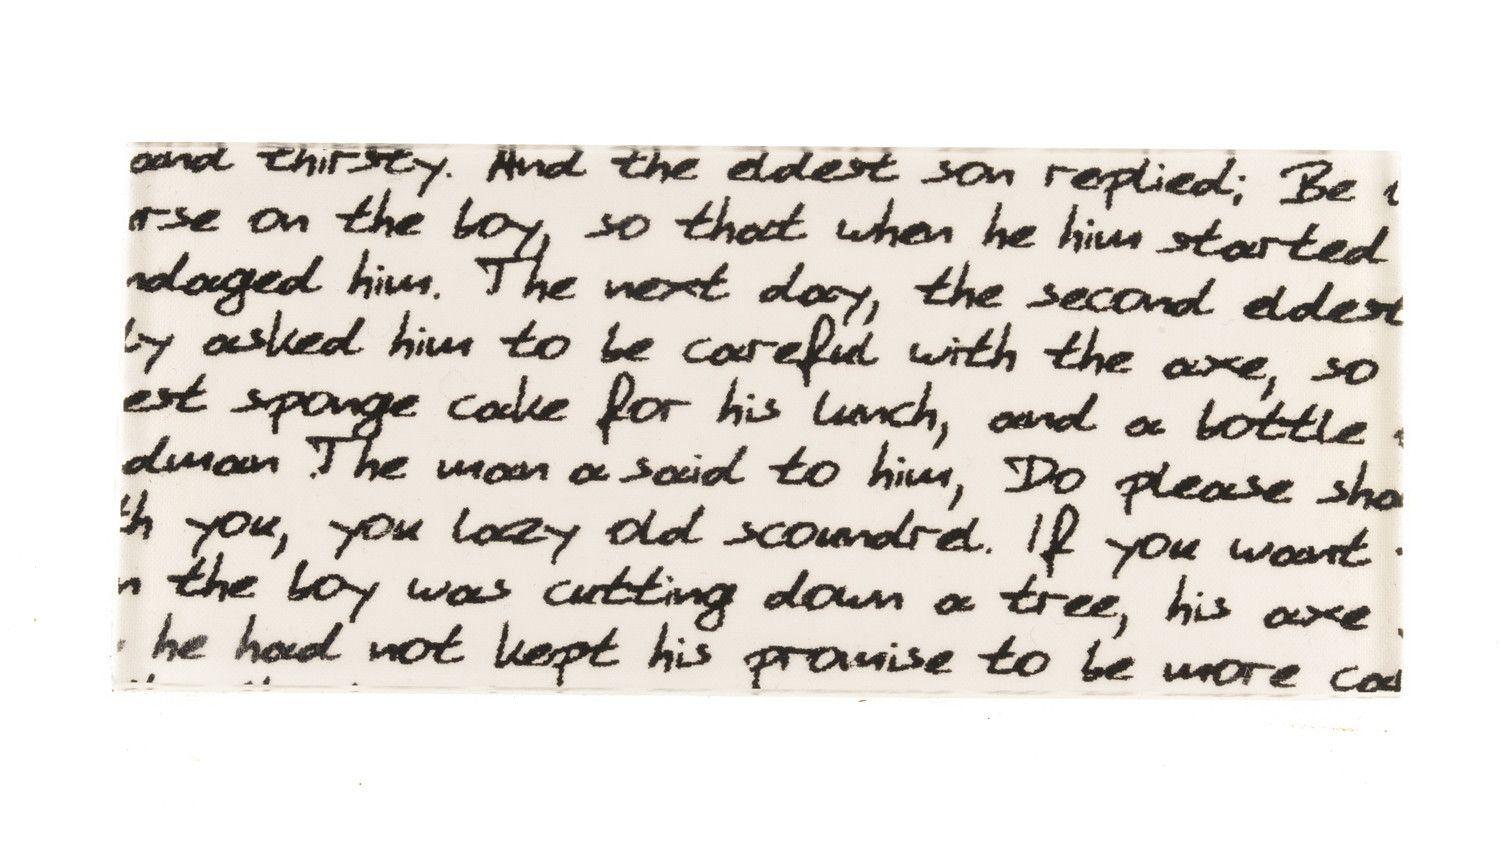 and thirsty. And the eldest son replied; Be
rse on the boy, so that when he him started
ndaged him. The next day, the second eldest
by asked him to be careful with the axe, so
est sponge cake for his lunch, and a bottle
dman The man a said to him, Do please sho
th you, you lazy old scoundrel. If you want
n the boy was cutting down a tree, his axe
he had not kept his promise to be more ca